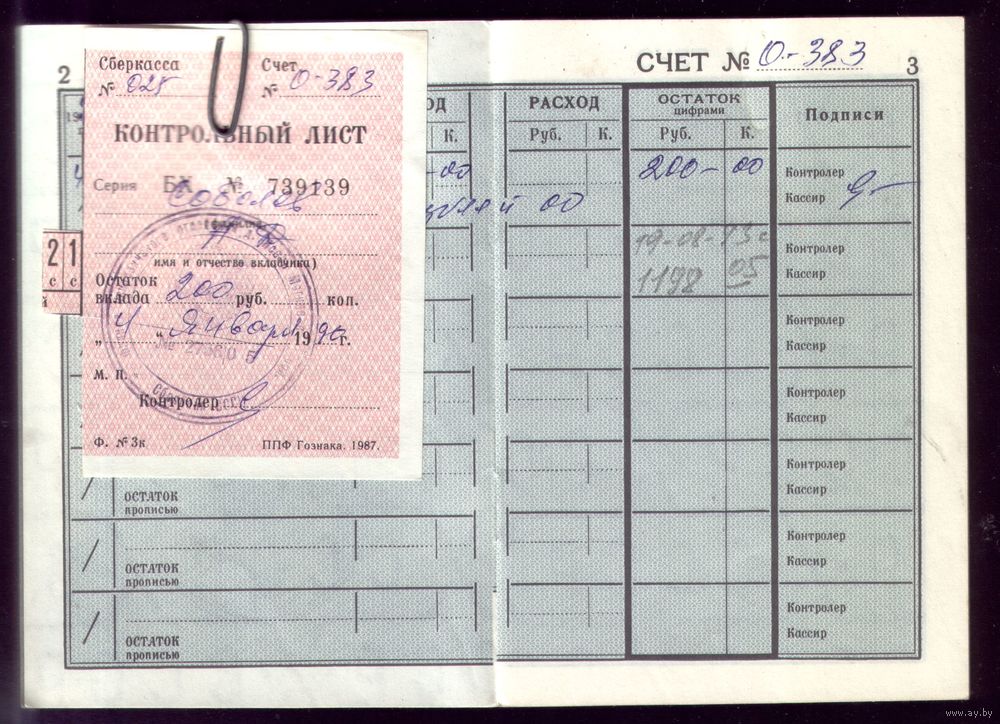 2
Сберкасса
№ 025
Счет
№ 0-383
КОНТРОЛЬНЫЙ ЛИСТ
Серия БХ № 739139
Соболев
имя и отчество вкладчика)
Остаток
вклада 200 руб. коп.
"4" Января 1990 г.
М. П.
Контролер
Ф. № 3к
ППФ Гознака. 1987.
2 1
с с
ОД
К.
-00
ОСТАТОК
прописью
ОСТАТОК
прописью
ОСТАТОК
прописью
СЧЕТ № 0-383
3
РАСХОД
Руб. К.
ОСТАТОК
цифрами
Руб. К.
Подписи
200-00
Контролер
Кассир
рублей 00
19-08-
1198 05
Контролер
Кассир
Контролер
Кассир
Контролер
Кассир
Контролер
Кассир
Контролер
Кассир
Контролер
Кассир
www.ay.by